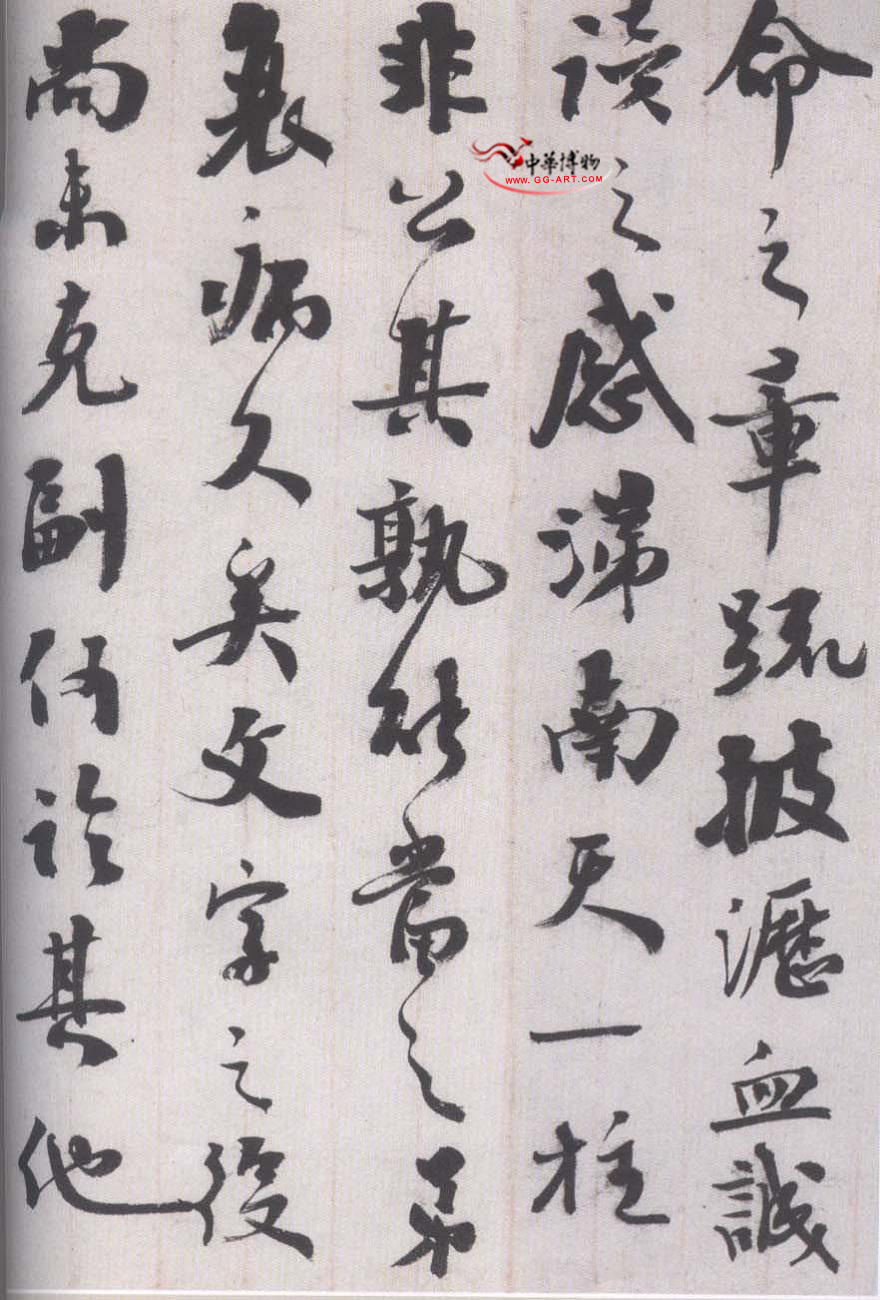 命之章疏披瀝血誠
讀之感涕南天一柱
非公其孰能當之弟
衰病久矣文字之役
尚未克副何論其他
中华博物
www.GG-ART.COM